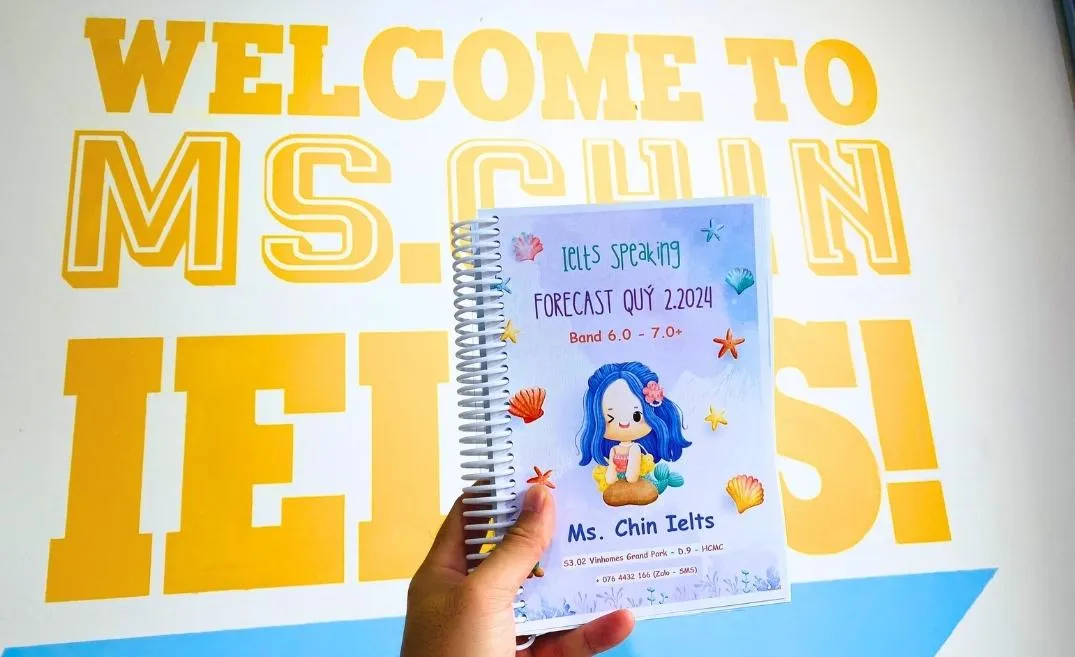 WELCOME TO
MS. CHIN
IELTS!
Ielts Speaking
FORECAST QUÝ 2.2024
Band 6.0 - 7.0+
Ms. Chin Ielts
S3.02 Vinhomes Grand Park - D.9 - HCMC
+ 076 4432 166 (Zalo - SMS)